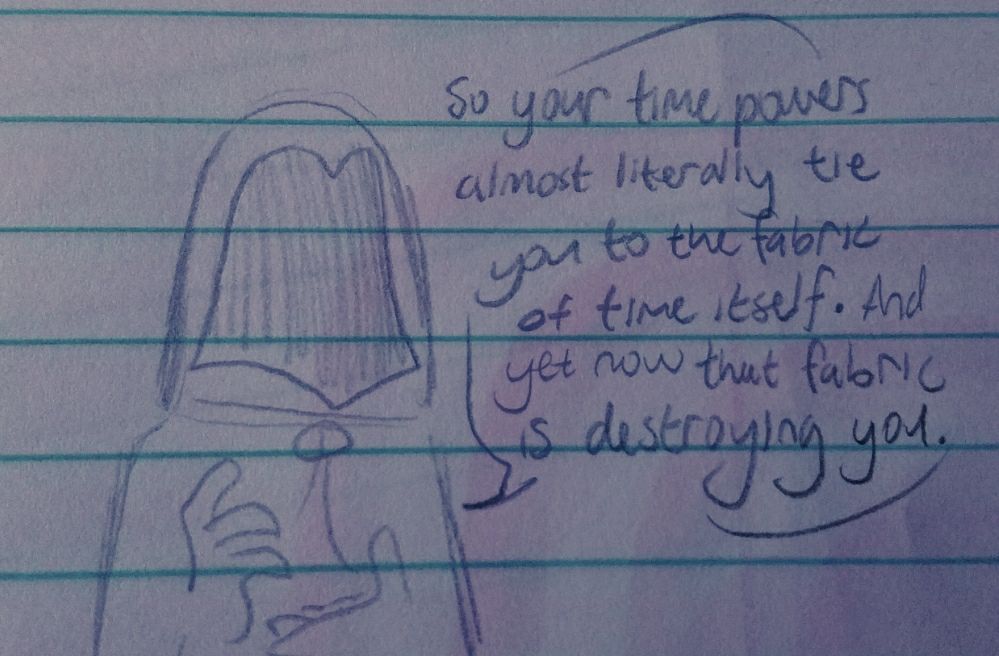 So your time powers
almost literally tie
you to the fabric
of time itself. And
yet now that fabric
is destroying you.